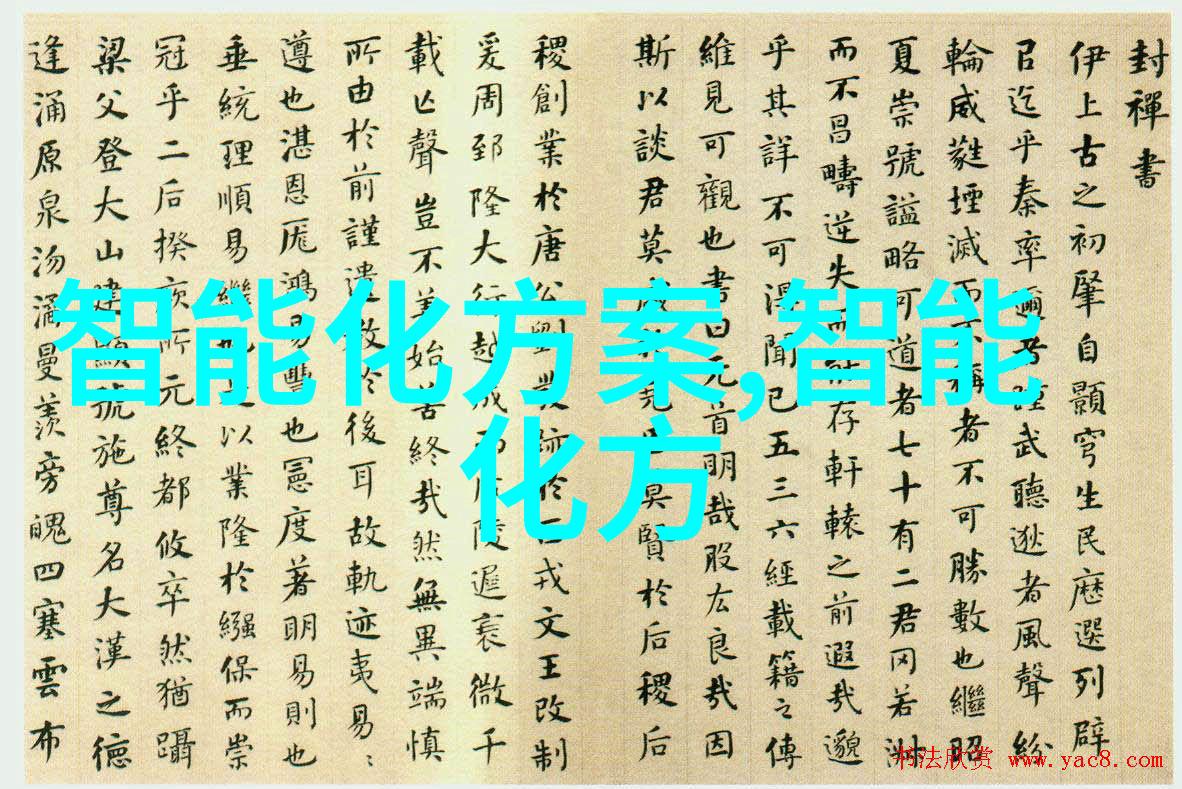 封禪書
伊上古之初肇自顥穹生民歷選列辟
㠯迄乎秦率邇者踵武聽逖者風聲紛
輪威蕤堙滅而不稱者不可勝數也繼昭
夏崇號謚略可道者七十有二君罔若淑
而不昌疇逆失而能存軒轅之前遐哉邈
乎其詳不可得聞已五三六經載籍之傳
維見可觀也書曰元首明哉股厷良哉因
斯以談君莫盛於堯臣莫賢於后稷后
稷創業於唐公劉發跡於西戎文王改制
爰周郅隆大行越成而后陵遲衰微千
載亡聲豈不善始善終哉然無異端慎
所由於前謹遺教於後耳故軌迹夷易〻
遵也湛恩厖鴻易豐也憲度著明易則也
垂統理順易繼也是以業隆於繈保而崇
冠乎二后揆厥所元終都攸卒然猶躡
梁父登大山建顯號施尊名大漢之德
逢涌原泉沕潏曼羨旁魄四塞雲布
智能化方案,智能
化方
书法欣赏 www.yac8.com